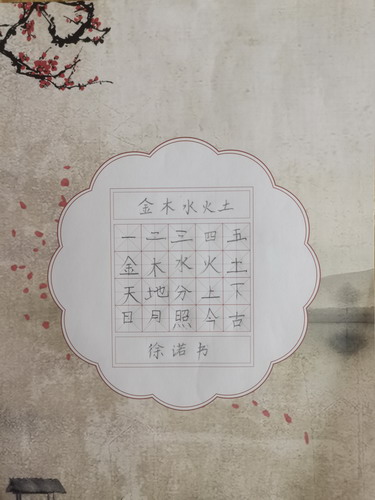 金木水火土
一二三四五
金木水火土
天地分上下
日月照今古
徐诺书